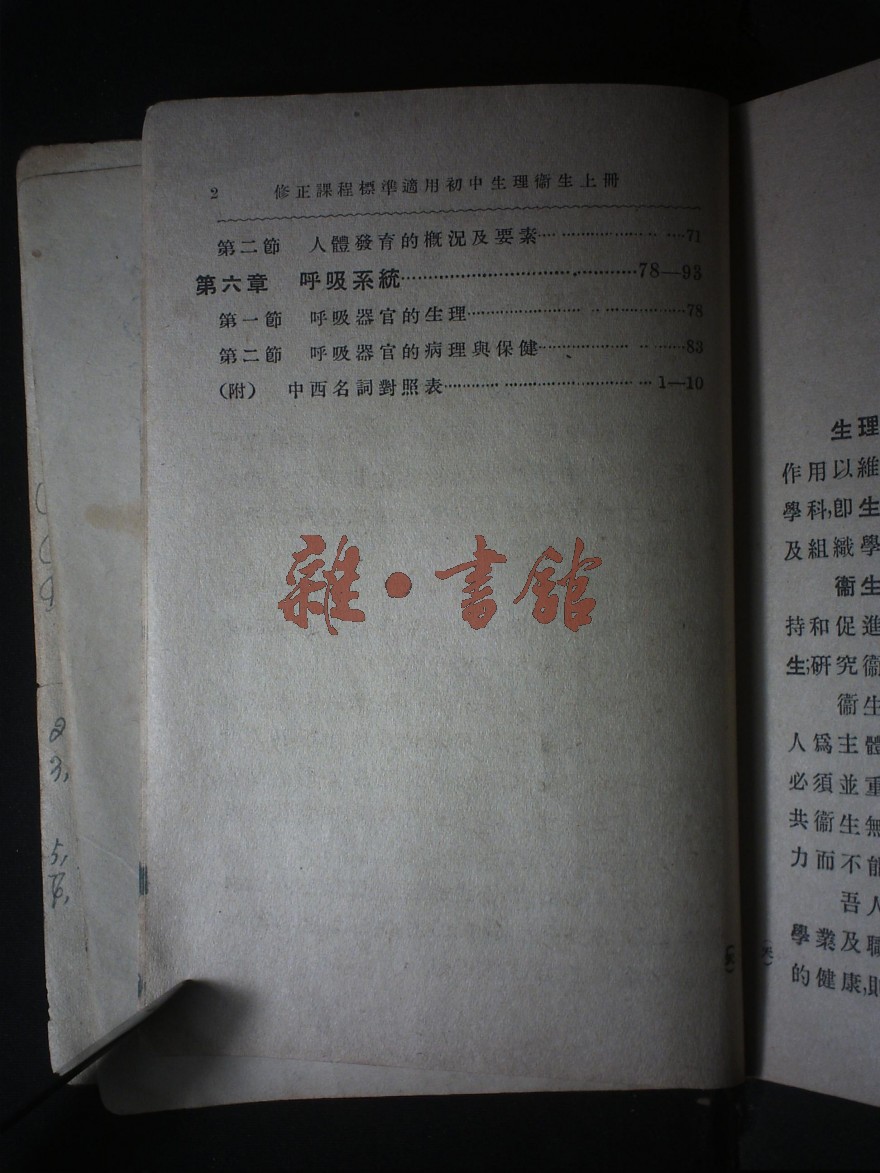 2 修正課程標準適用初中生理衞生上冊
第二節 人體發育的概況及要素…………71
第六章 呼吸系統…………78—93
第一節 呼吸器官的生理…………78
第二節 呼吸器官的病理與保健…………83
(附) 中西名詞對照表…………1—10
雜·書館
生理
作用以維
學科,卽生
及組織學
衞生
持和促進
生;研究衞
衞生
人爲主體
必須並重
共衞生無
力而不能
吾人
學業及職
的健康,則
2
3,
5,
6,